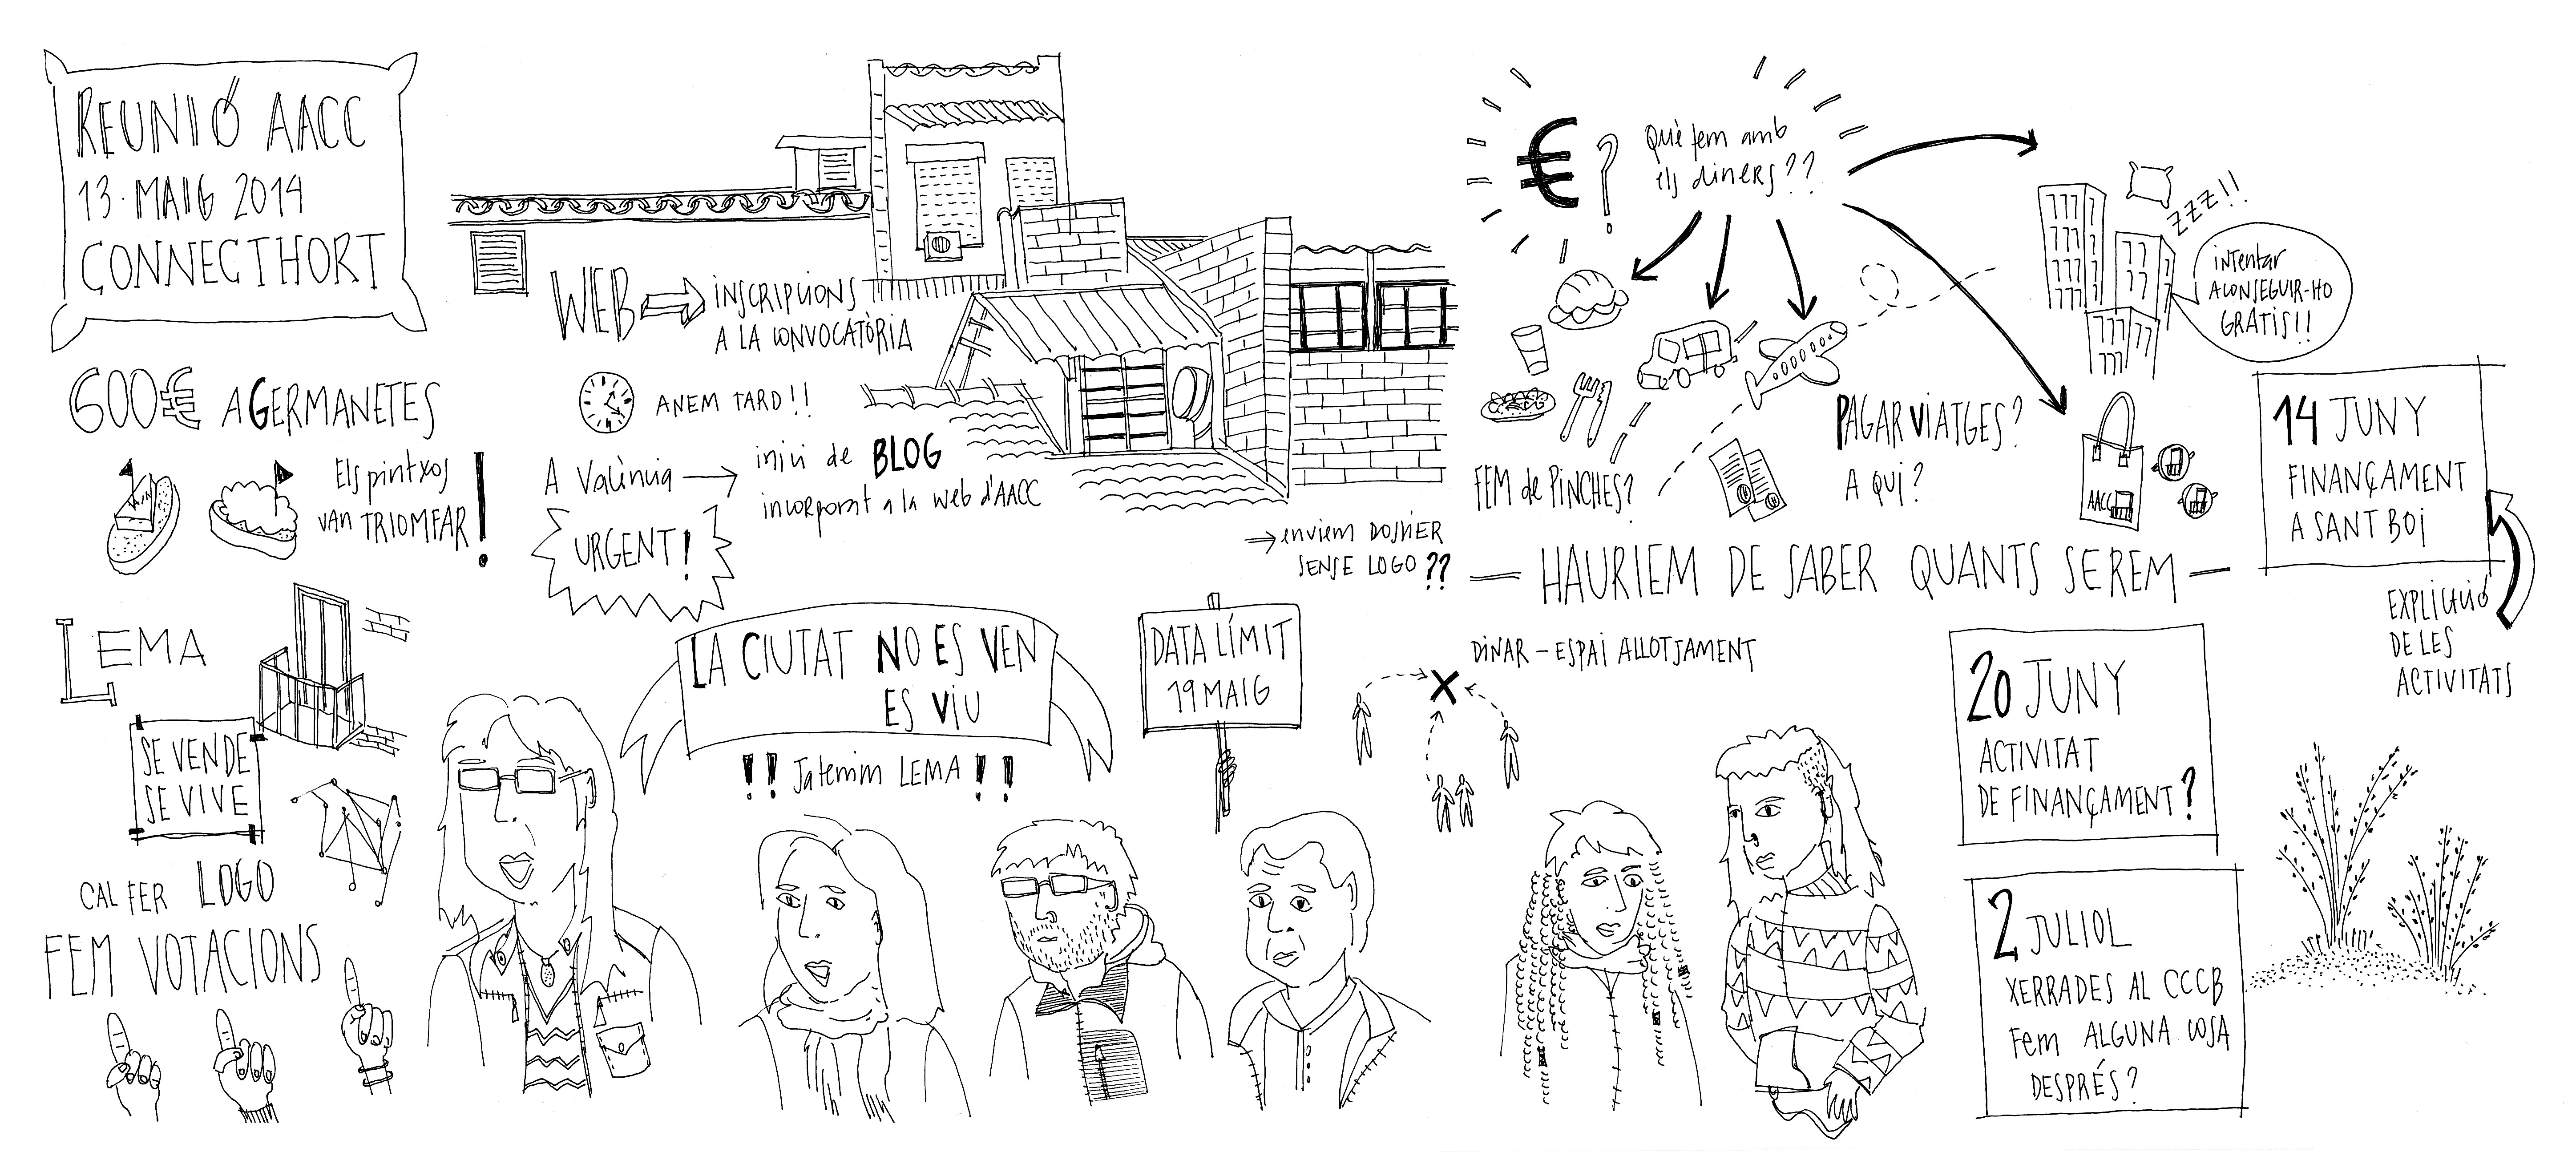 REUNIÓ AACC
13·MAIG 2014
CONNECTHORT
600€ AGERMANETES
Els pintxos
van TRIOMFAR!
LEMA
SE VENDE
SE VIVE
CAL FER LOGO
FEM VOTACIONS
WEB ⇒ INSCRIPCIONS
A LA CONVOCATÒRIA
ANEM TARD!!
A València → inici de BLOG
incorporat a la web d'AACC
URGENT!
→ enviem DOSSIER
SENSE LOGO ??
LA CIUTAT NO ES VEN
ES VIU
!! Ja tenim LEMA !!
DATA LÍMIT
19 MAIG
€ ? Què fem amb
els diners??
ZZZ!!
intentar
ACONSEGUIR-HO
GRATIS!!
FEM de PINCHES?
PAGAR VIATGES?
A QUI?
AACC
— HAURIEM DE SABER QUANTS SEREM —
DINAR – ESPAI ALLOTJAMENT
14 JUNY
FINANÇAMENT
A SANT BOI
EXPLICACIÓ
DE LES
ACTIVITATS
20 JUNY
ACTIVITAT
DE FINANÇAMENT?
2 JULIOL
XERRADES AL CCCB
Fem ALGUNA COSA
DESPRÉS?